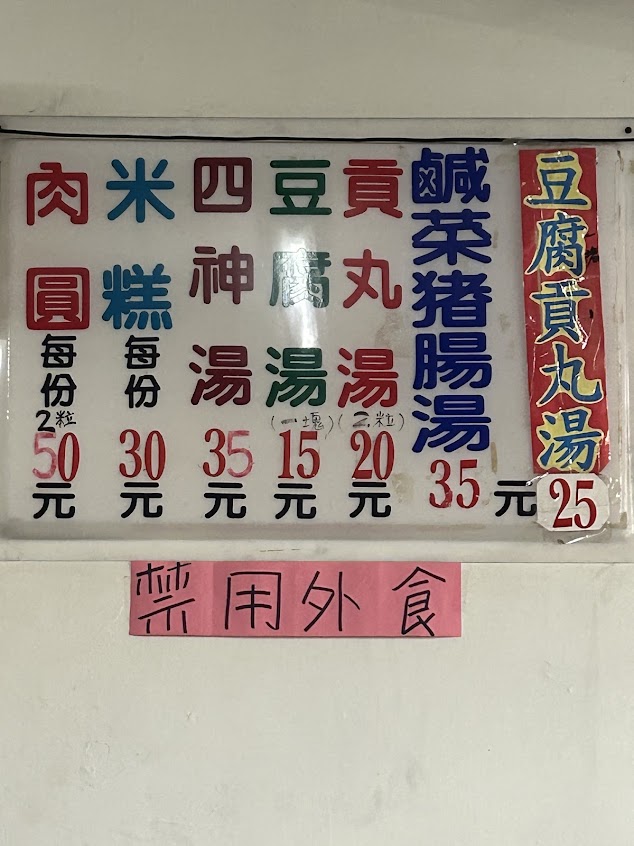 肉圓每份2粒50元
米糕每份30元
四神湯35元
豆腐湯(一塊)15元
貢丸湯(2粒)20元
鹹菜豬腸湯35元
豆腐貢丸湯25
禁用外食